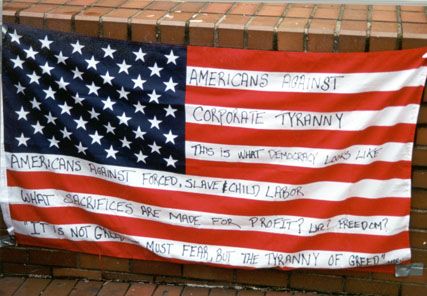 AMERICANS AGAINST
CORPORATE TYRANNY
THIS IS WHAT DEMOCRACY LOOKS LIKE
AMERICANS AGAINST FORCED, SLAVE & CHILD LABOR
WHAT SACRIFICES ARE MADE FOR PROFIT? FREEDOM?
"IT IS NOT MUST FEAR, BUT THE TYRANNY OF GREED"